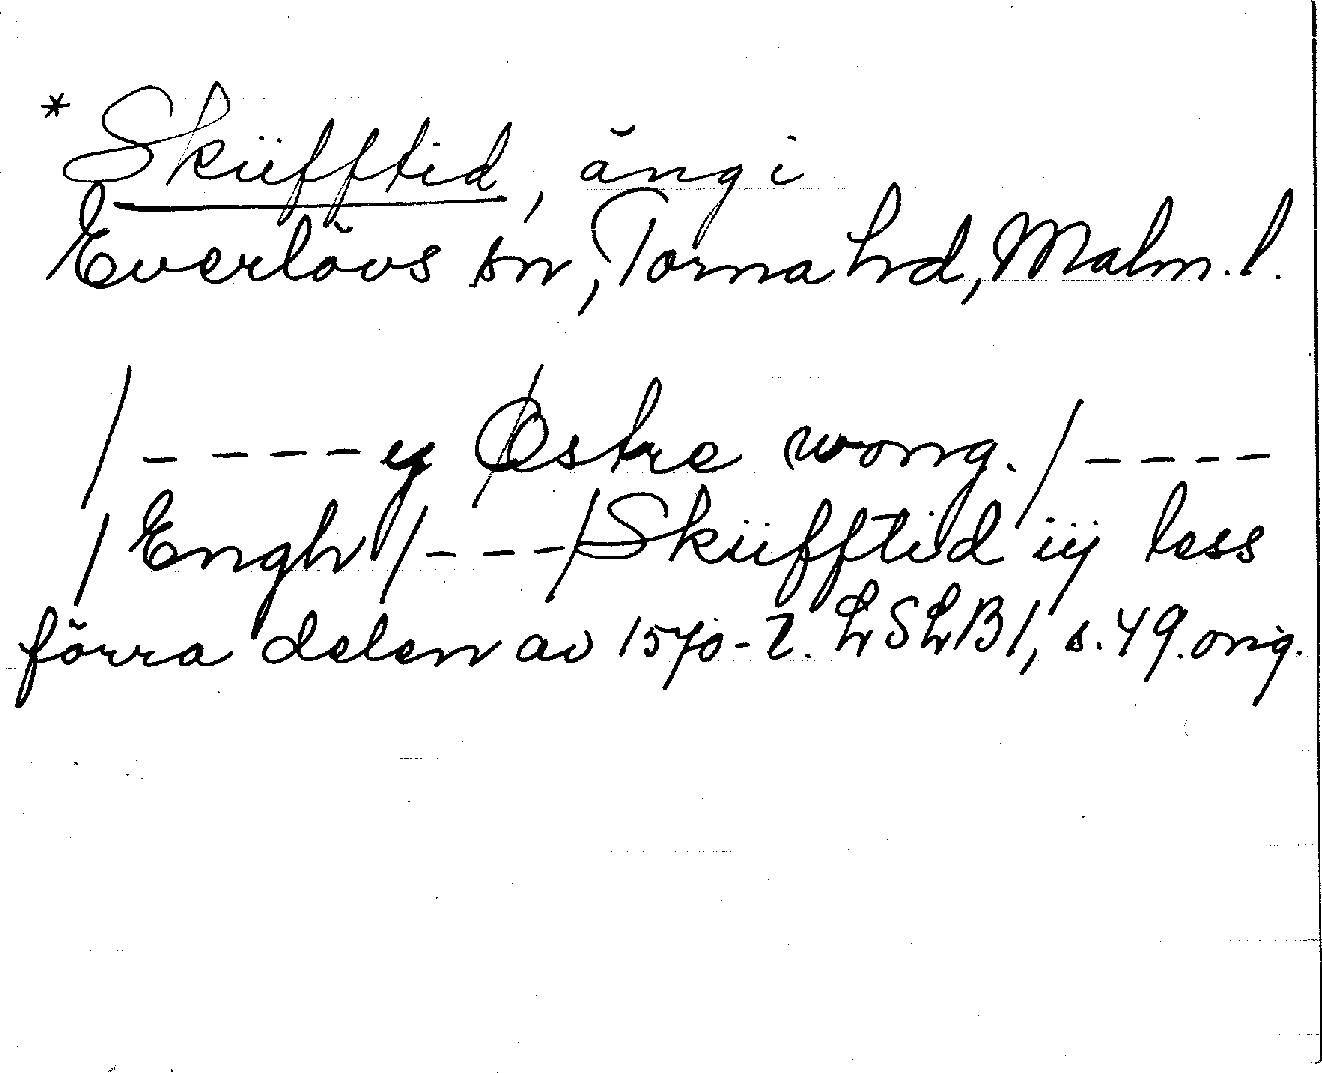 * Sküfftid, äng i
Everlövs sn, Torna hrd, Malm. l.
/ - - - - ey Østre wong. / - - - -
/ Engh / - - - / Sküfftid iij less
förra delen av 1570-t. LSLB1, s. 49. orig.